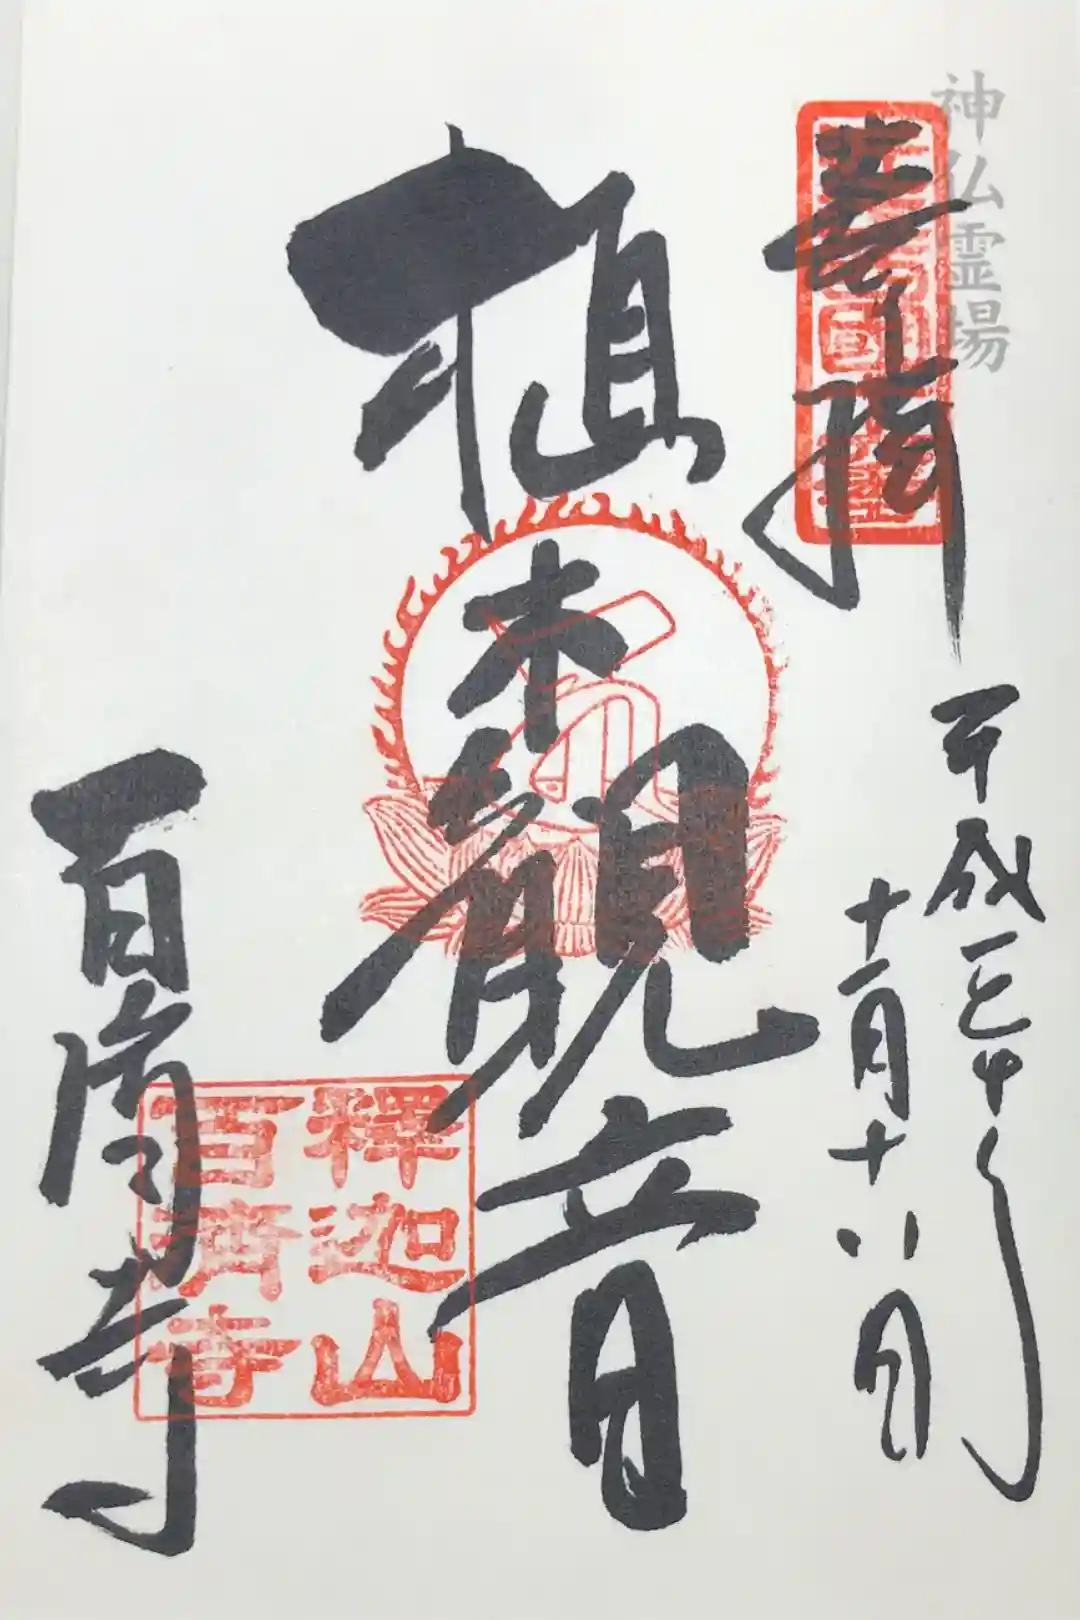 神仏霊場
奉拝
平成
十一月十八日
植木観音
百済寺
釋迦山
百濟寺